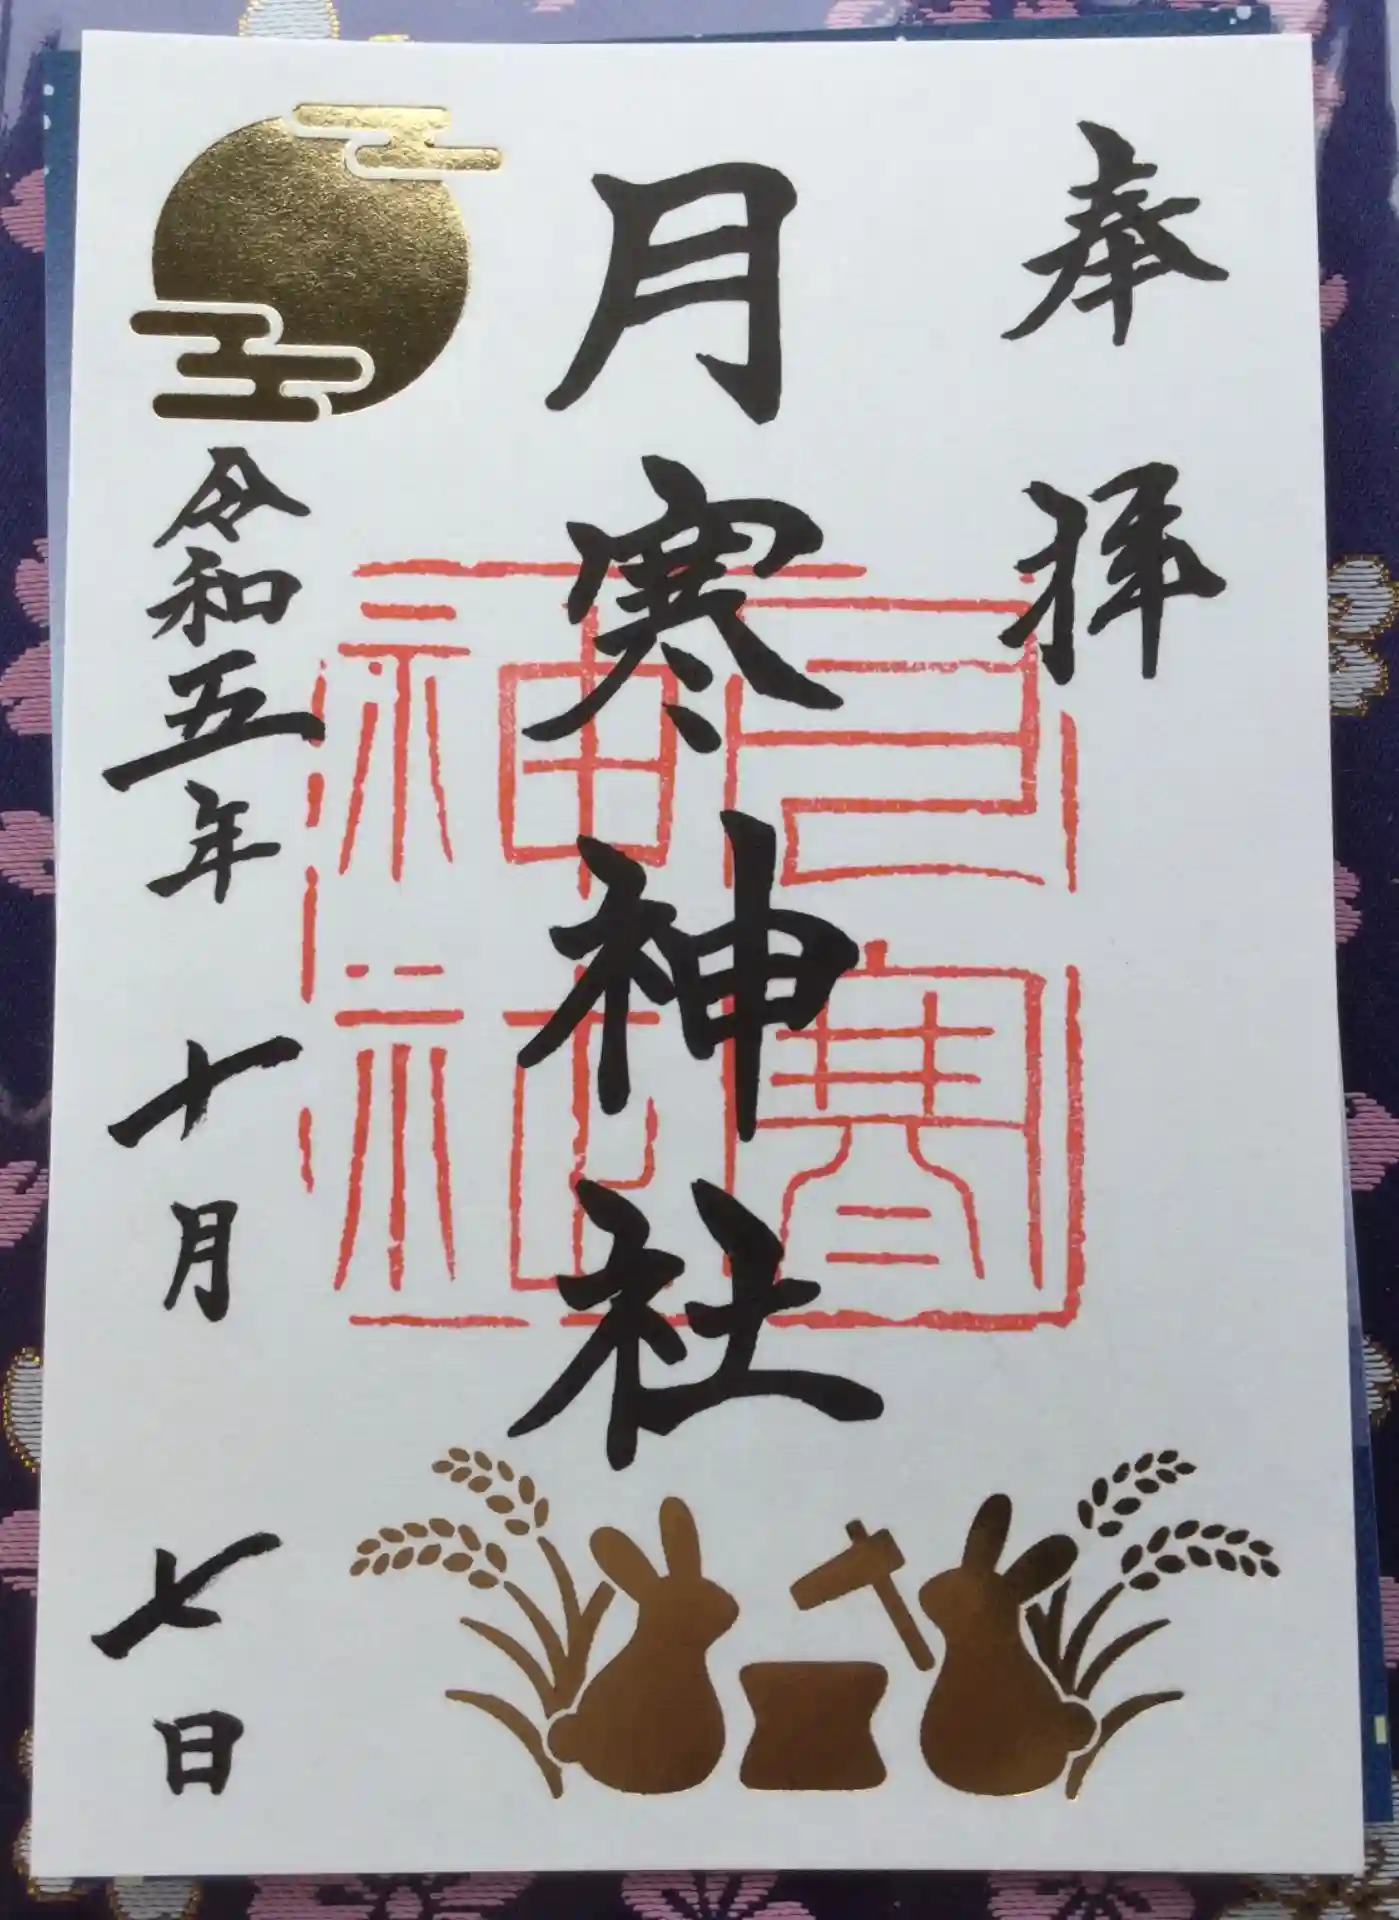 奉拝
月寒神社
月寒神社
令和五年十月七日